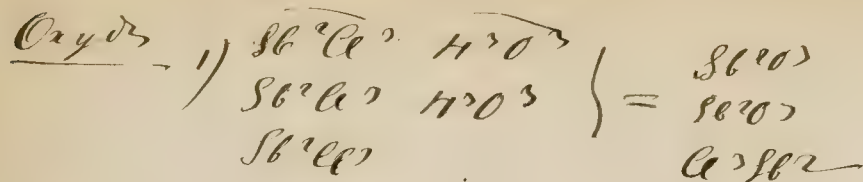 Oxyds 1) Sb²Cl³ H³O³
Sb²Cl³ H³O³ } = Sb²O³
Sb²Cl³ Sb²O³
Cl³Sb²